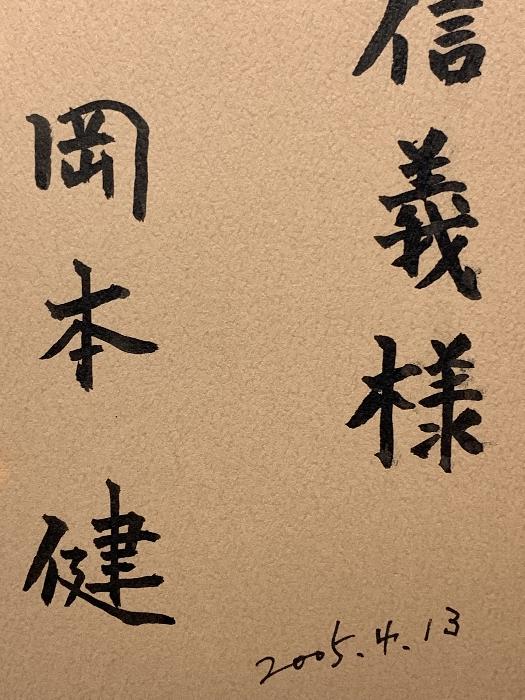 信義様
岡本健
2005.4.13